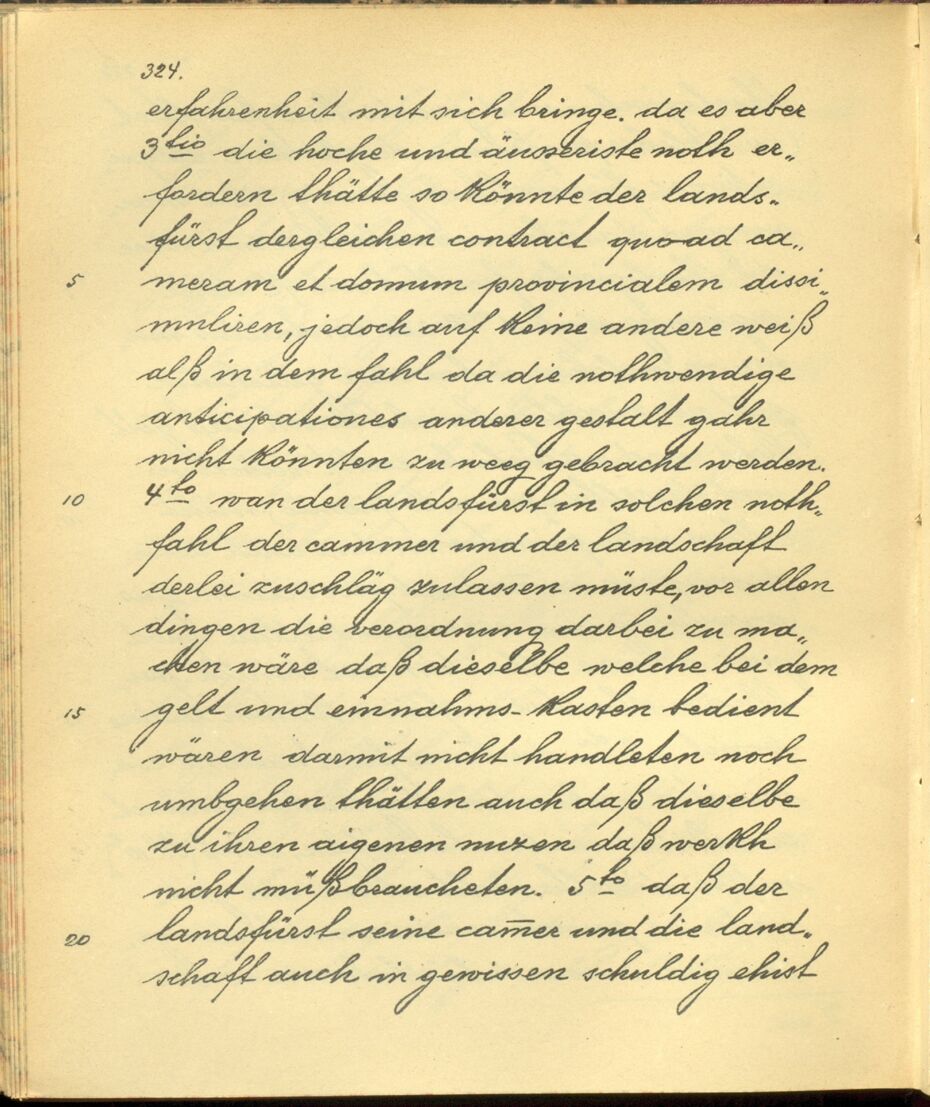 324.
erfahrenheit mit sich bringe. da es aber
3tio die hoche und äusseriste noth er„
fordern thätte so könnte der lands„
fürst dergleichen contract quoad ca„
5 meram et domum provincialem dissi„
muliren, jedoch auf keine andere weiß
alß in dem fahl da die nothwendige
anticipationes anderer gestalt gahr
nicht könnten zu weeg gebracht werden.
10 4to wan der landsfürst in solchen noth„
fahl der cammer und der landschaft
derlei zuschläg zulassen müste, vor allen
dingen die verordnung darbei zu ma„
chen wäre daß dieselbe welche bei dem
15 gelt und einnahms-kasten bedient
wären darmit nicht handleten noch
umbgehen thätten auch daß dieselbe
zu ihren aigenen nuzen daß werkh
nicht müßbraucheten. 5to daß der
20 landsfürst seine cam̅er und die land„
schaft auch in gewissen schuldig ehist